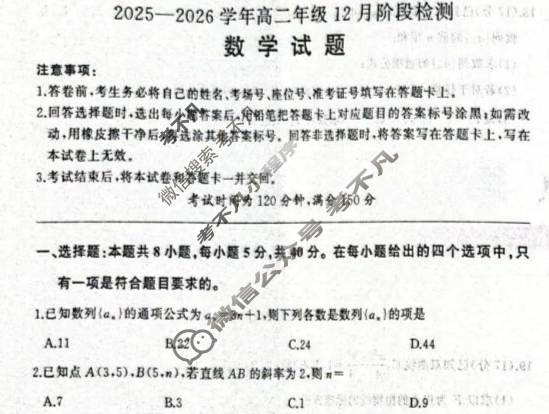 2025—2026学年高二年级12月阶段检测
数学试题
注意事项:
1.答卷前,考生务必将自己的姓名、考场号、座位号、准考证号填写在答题卡上。
2.回答选择题时,选出每小题答案后,用铅笔把答题卡上对应题目的答案标号涂黑;如需改
动,用橡皮擦干净后,再选涂其他答案标号。回答非选择题时,将答案写在答题卡上,写在
本试卷上无效。
3.考试结束后,将本试卷和答题卡一并交回。
考试时间为120分钟,满分150分
一、选择题:本题共8小题,每小题5分,共40分。在每小题给出的四个选项中,只
有一项是符合题目要求的。
1.已知数列{aₙ}的通项公式为aₙ=3n+1,则下列各数是数列{aₙ}的项是
A.11 B.22 C.24 D.44
2.已知点A(3,5),B(5,n),若直线AB的斜率为2,则n=
A.7 B.3 C.1 D.9
微信搜索 考不凡小程序
微信公众号 考不凡
考不凡